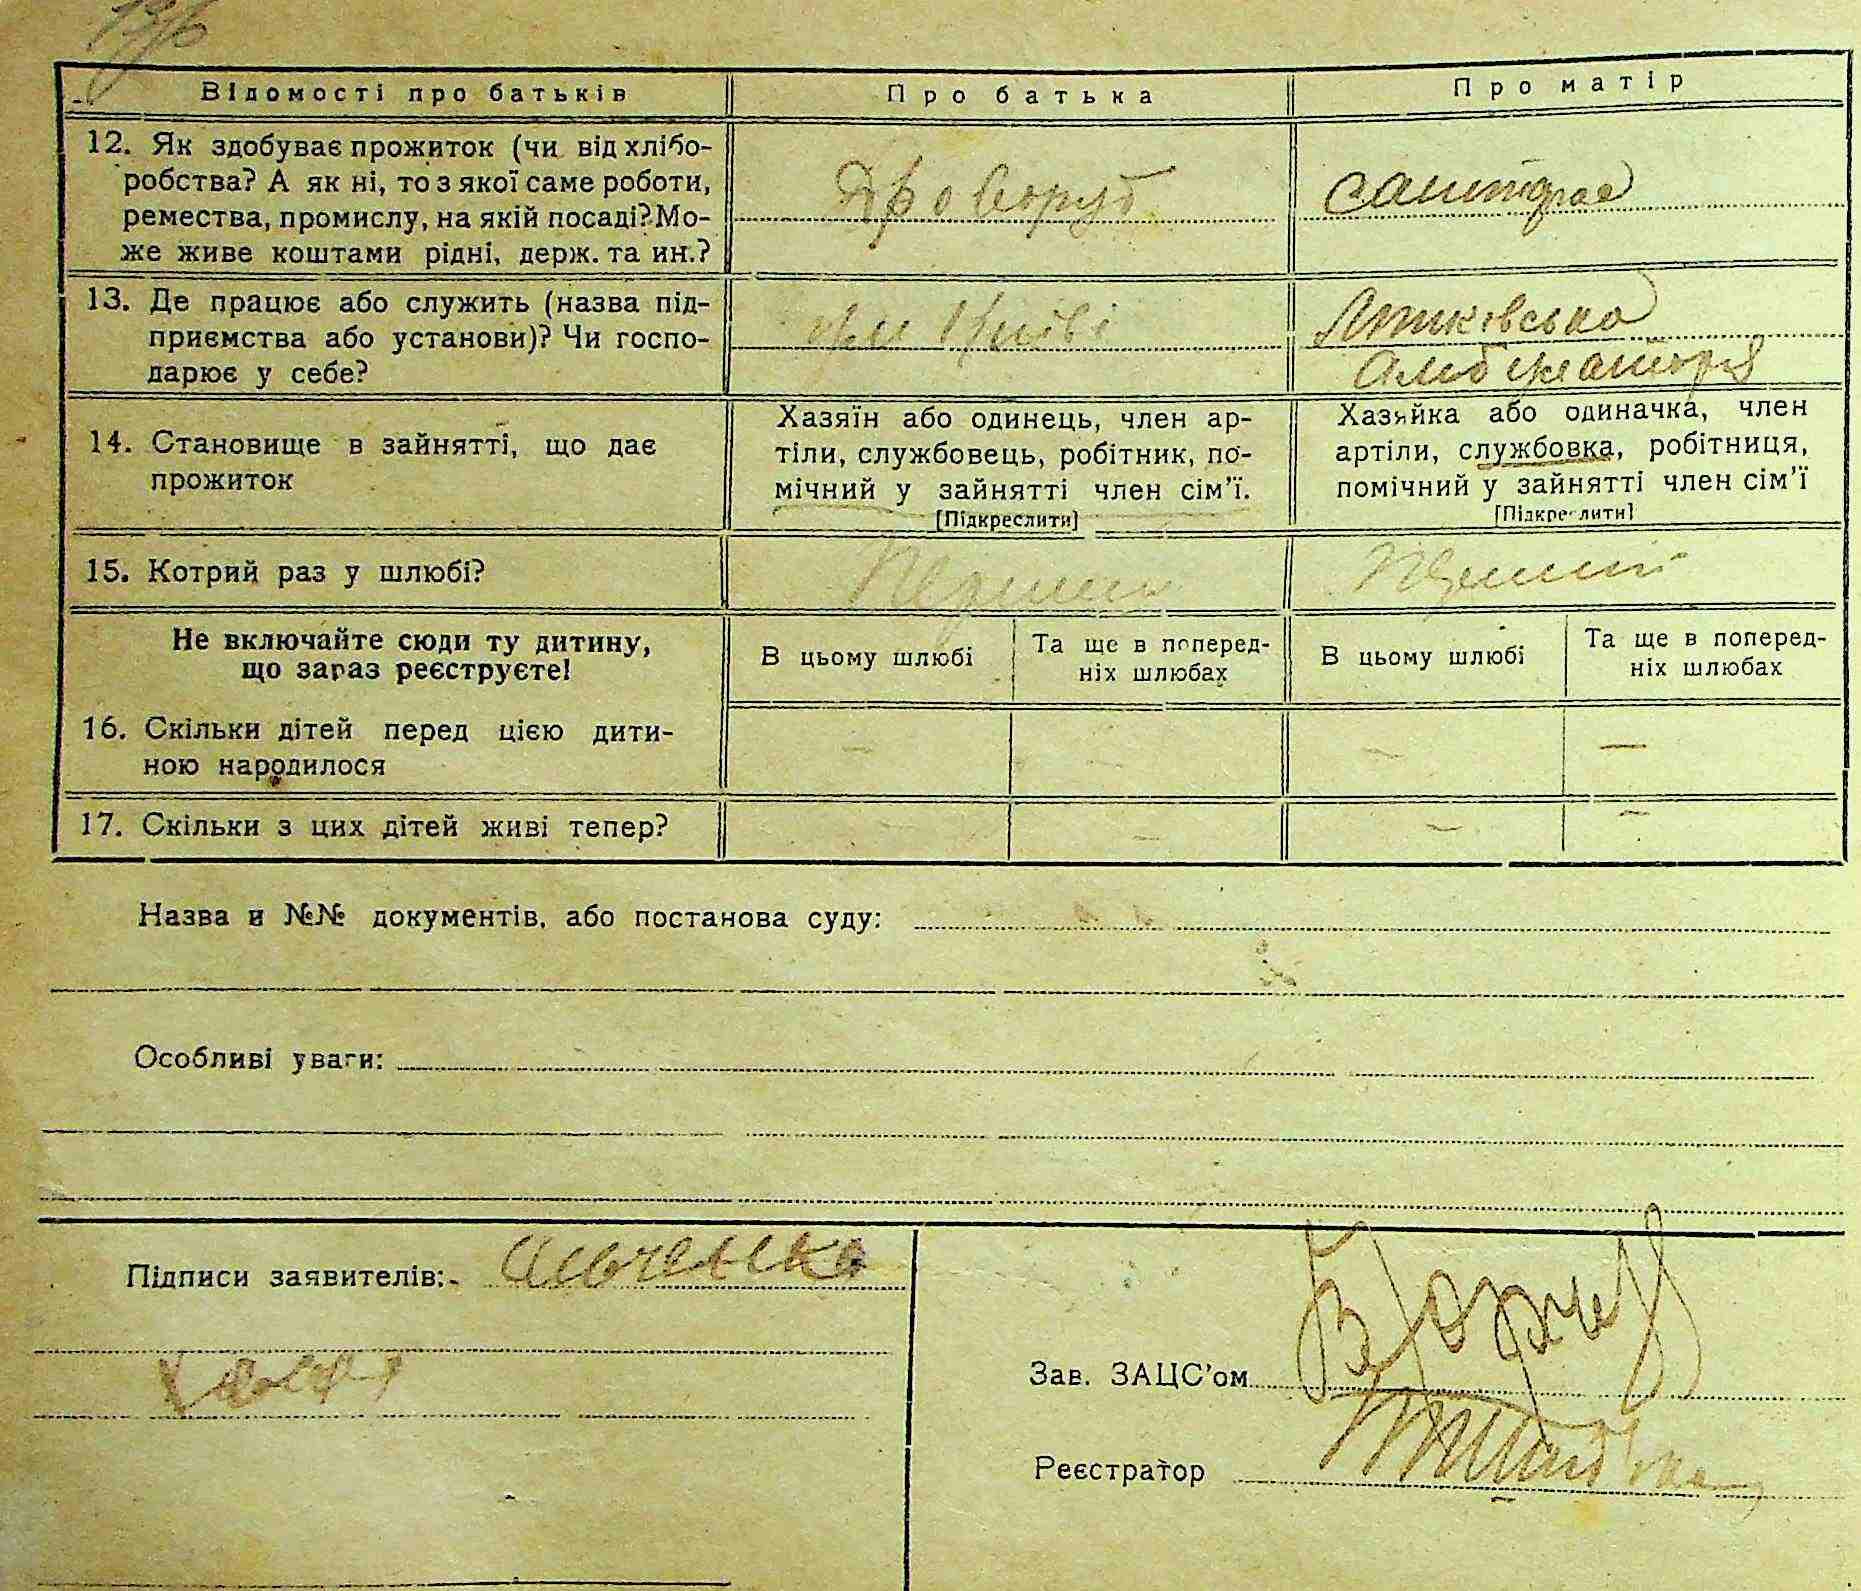 Відомості про батьків
Про батька
Про матір
12. Як здобуває прожиток (чи від хлібо-
робства? А як ні, то з якої саме роботи,
ремества, промислу, на якій посаді? Мо-
же живе коштами рідні, держ. та ин.?
Дроворуб
13. Де працює або служить (назва під-
приємства або установи)? Чи госпо-
дарює у себе?
Київі
Літківська
амбулаторія
14. Становище в зайнятті, що дає
прожиток
Хазяїн або одинець, член ар-
тіли, службовець, робітник, по-
мічний у зайнятті член сім'ї.
[Підкреслити]
Хазяйка або одиначка, член
артіли, службовка, робітниця,
помічний у зайнятті член сім'ї
[Підкреслити]
15. Котрий раз у шлюбі?
Перший
Перший
Не включайте сюди ту дитину,
що зараз реєструєте!
В цьому шлюбі
Та ще в поперед-
ніх шлюбах
В цьому шлюбі
Та ще в поперед-
ніх шлюбах
16. Скільки дітей перед цією дити-
ною народилося
— — — —
17. Скільки з цих дітей живі тепер?
— — — —
Назва и №№ документів, або постанова суду:
Особливі уваги:
Підписи заявителів:-
Зав. ЗАЦС'ом
Реєстратор